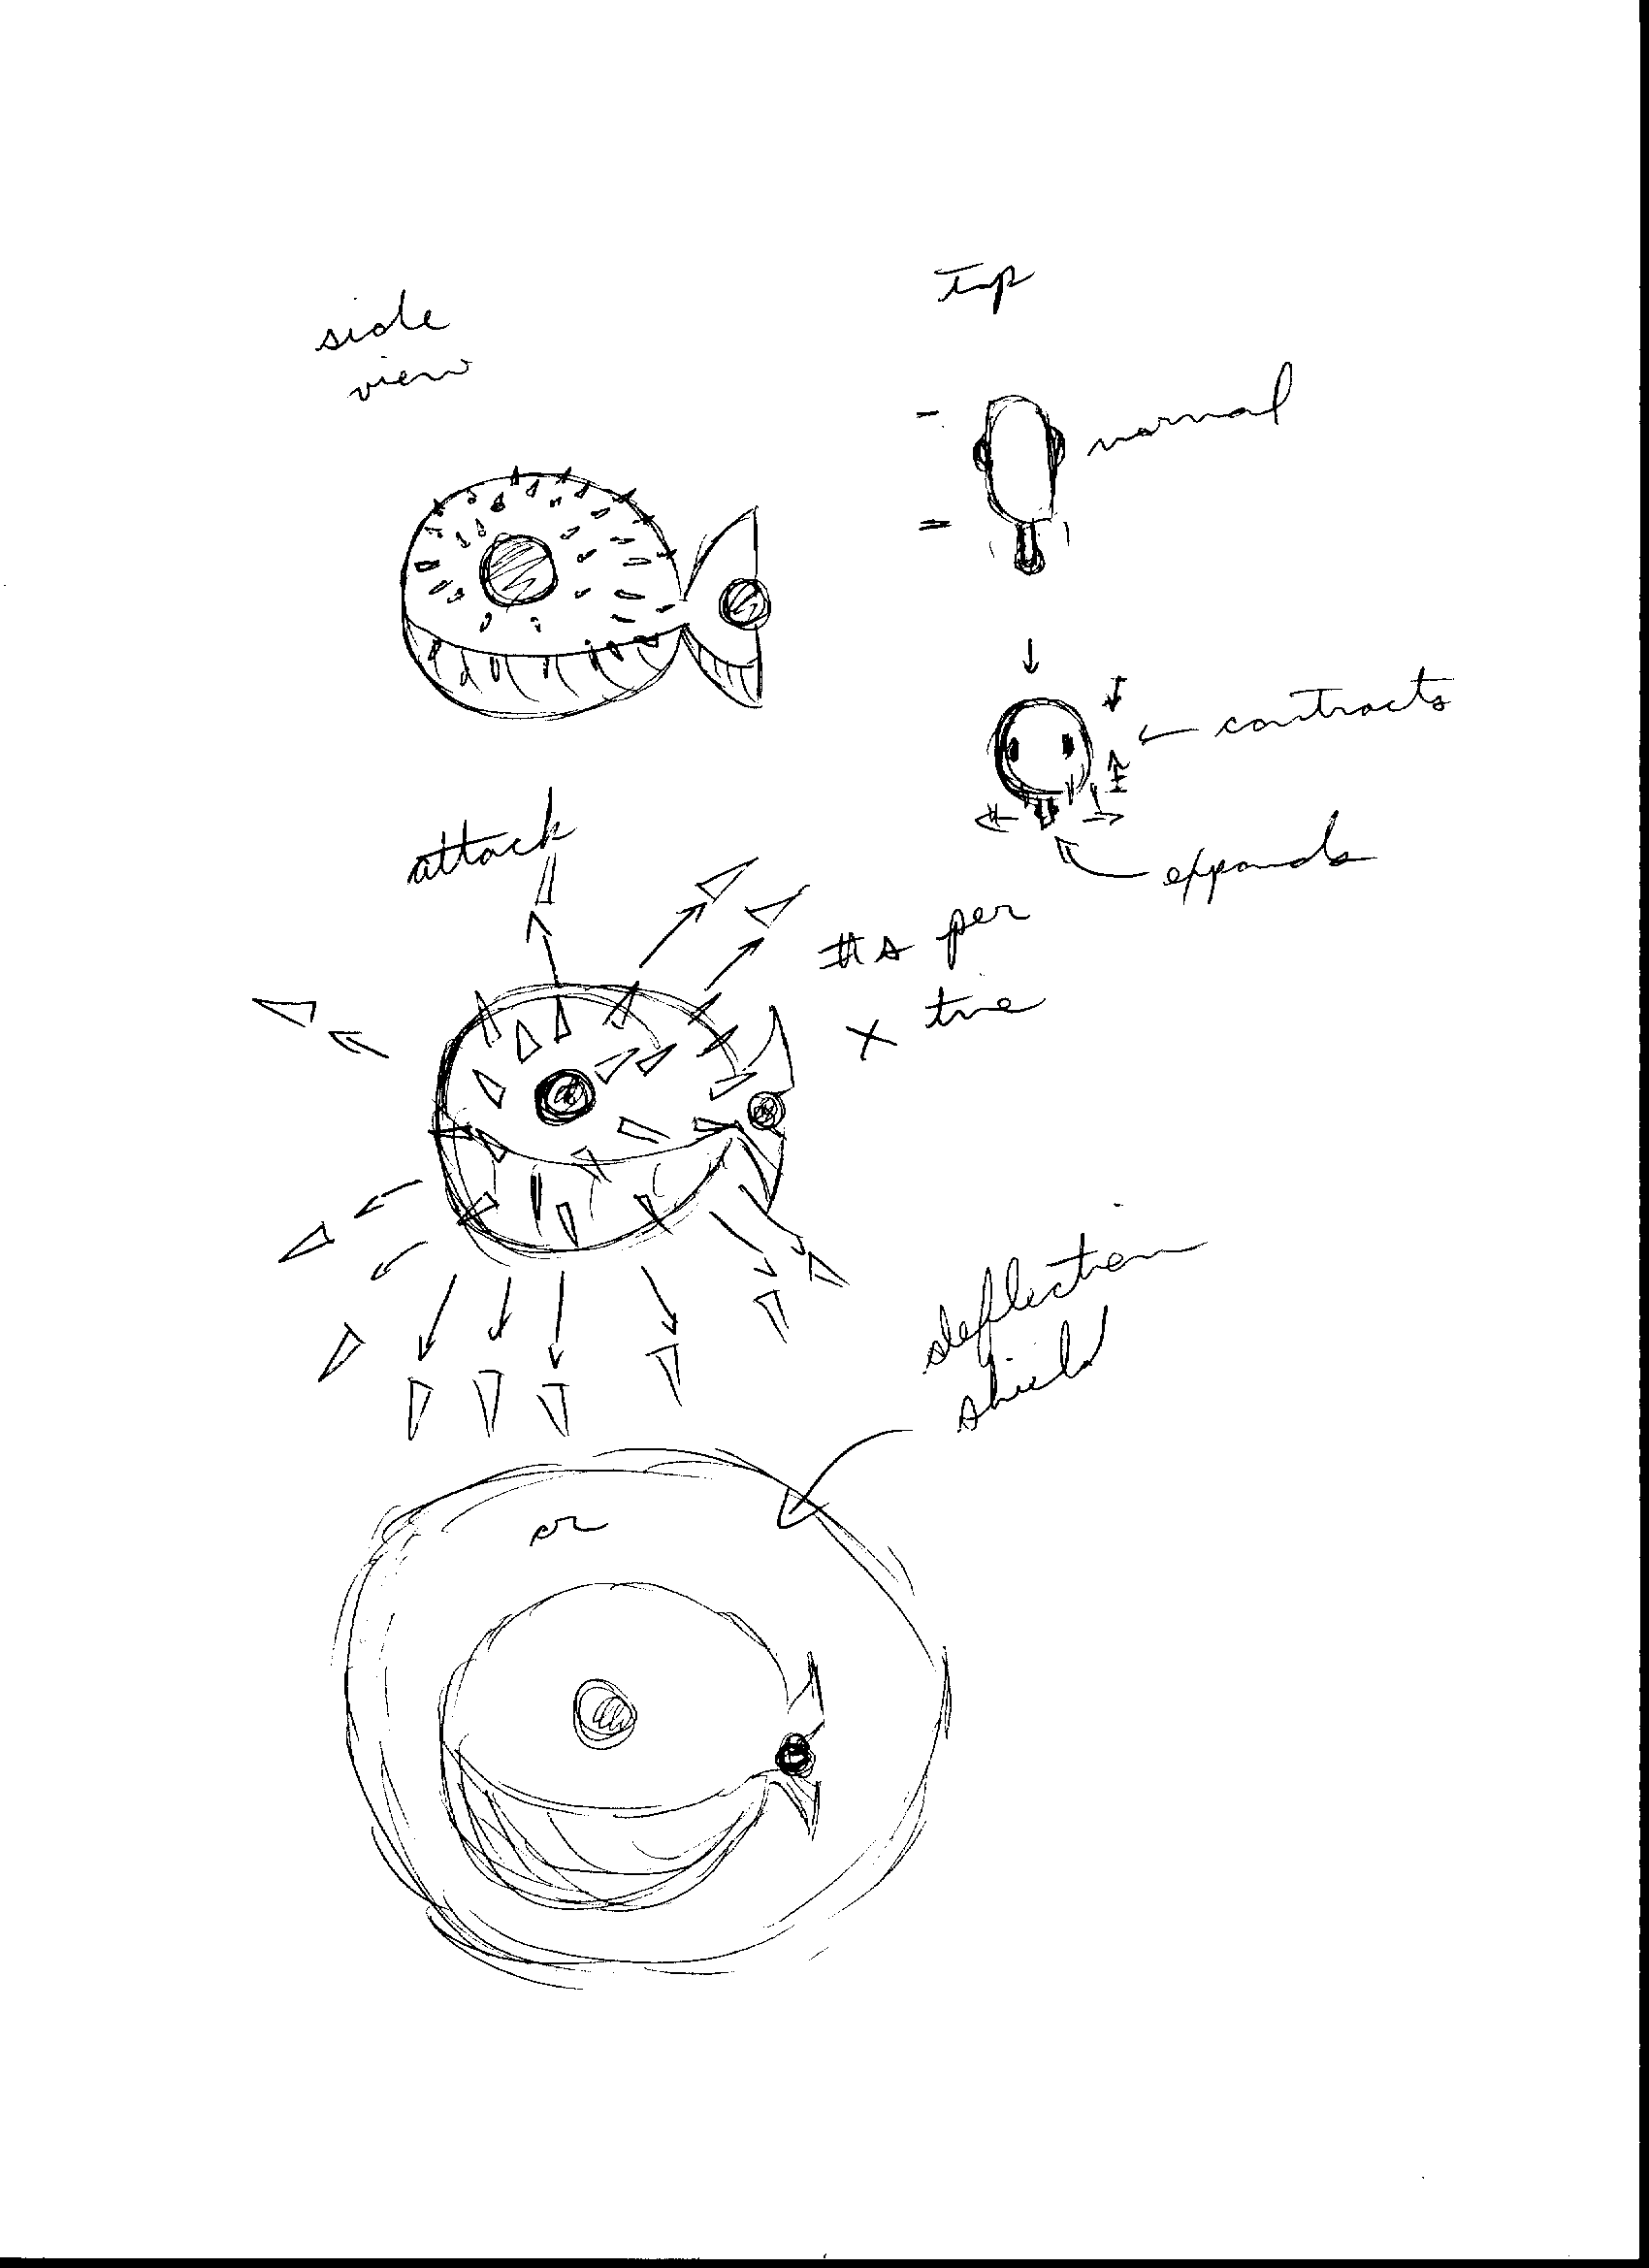 side
view
Top
normal
contracts
expands
attack
#s per
x time
deflection
shield
or